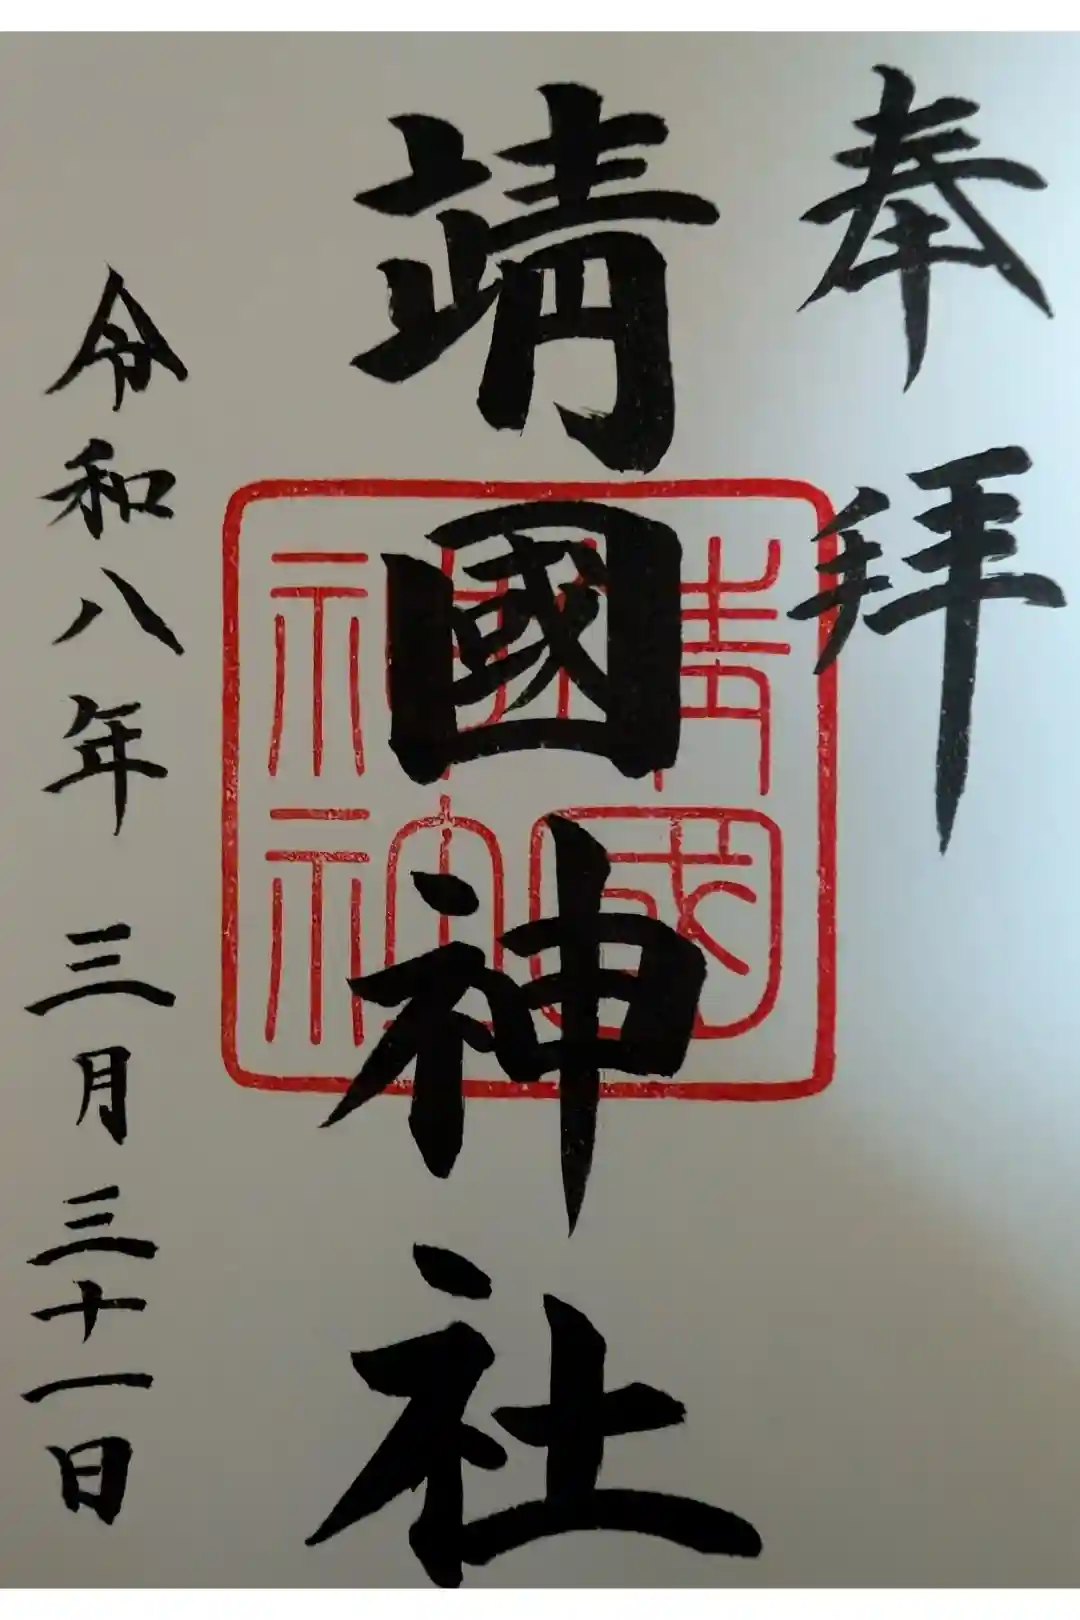 奉拝
靖國神社
令和八年 三月 三十一日